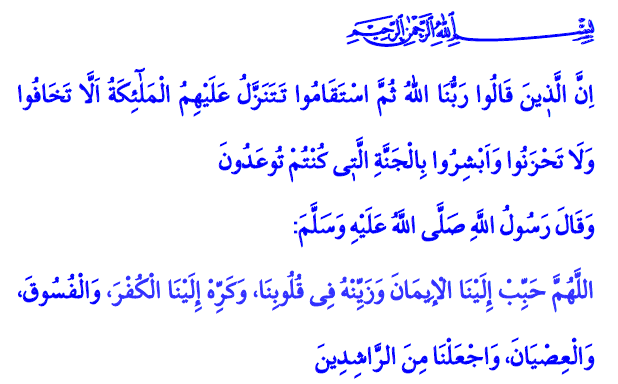 بِسْمِ اللهِ الرَّحْمٰنِ الرَّحِيمِ
اِنَّ الَّذٖينَ قَالُوا رَبُّنَا اللهُ ثُمَّ اسْتَقَامُوا تَتَنَزَّلُ عَلَيْهِمُ الْمَلٰٓئِكَةُ اَلَّا تَخَافُوا
وَلَا تَحْزَنُوا وَاَبْشِرُوا بِالْجَنَّةِ الَّتٖى كُنْتُمْ تُوعَدُونَ
وَقَالَ رَسُولُ اللَّهِ صَلَّى اللَّهُ عَلَيْهِ وَسَلَّمَ:
اللَّهُمَّ حَبِّبْ إِلَيْنَا الْإِيمَانَ وَزَيِّنْهُ فِى قُلُوبِنَا، وَكَرِّهْ إِلَيْنَا الْكُفْرَ، وَالْفُسُوقَ،
وَالْعِصْيَانَ، وَاجْعَلْنَا مِنَ الرَّاشِدِينَ